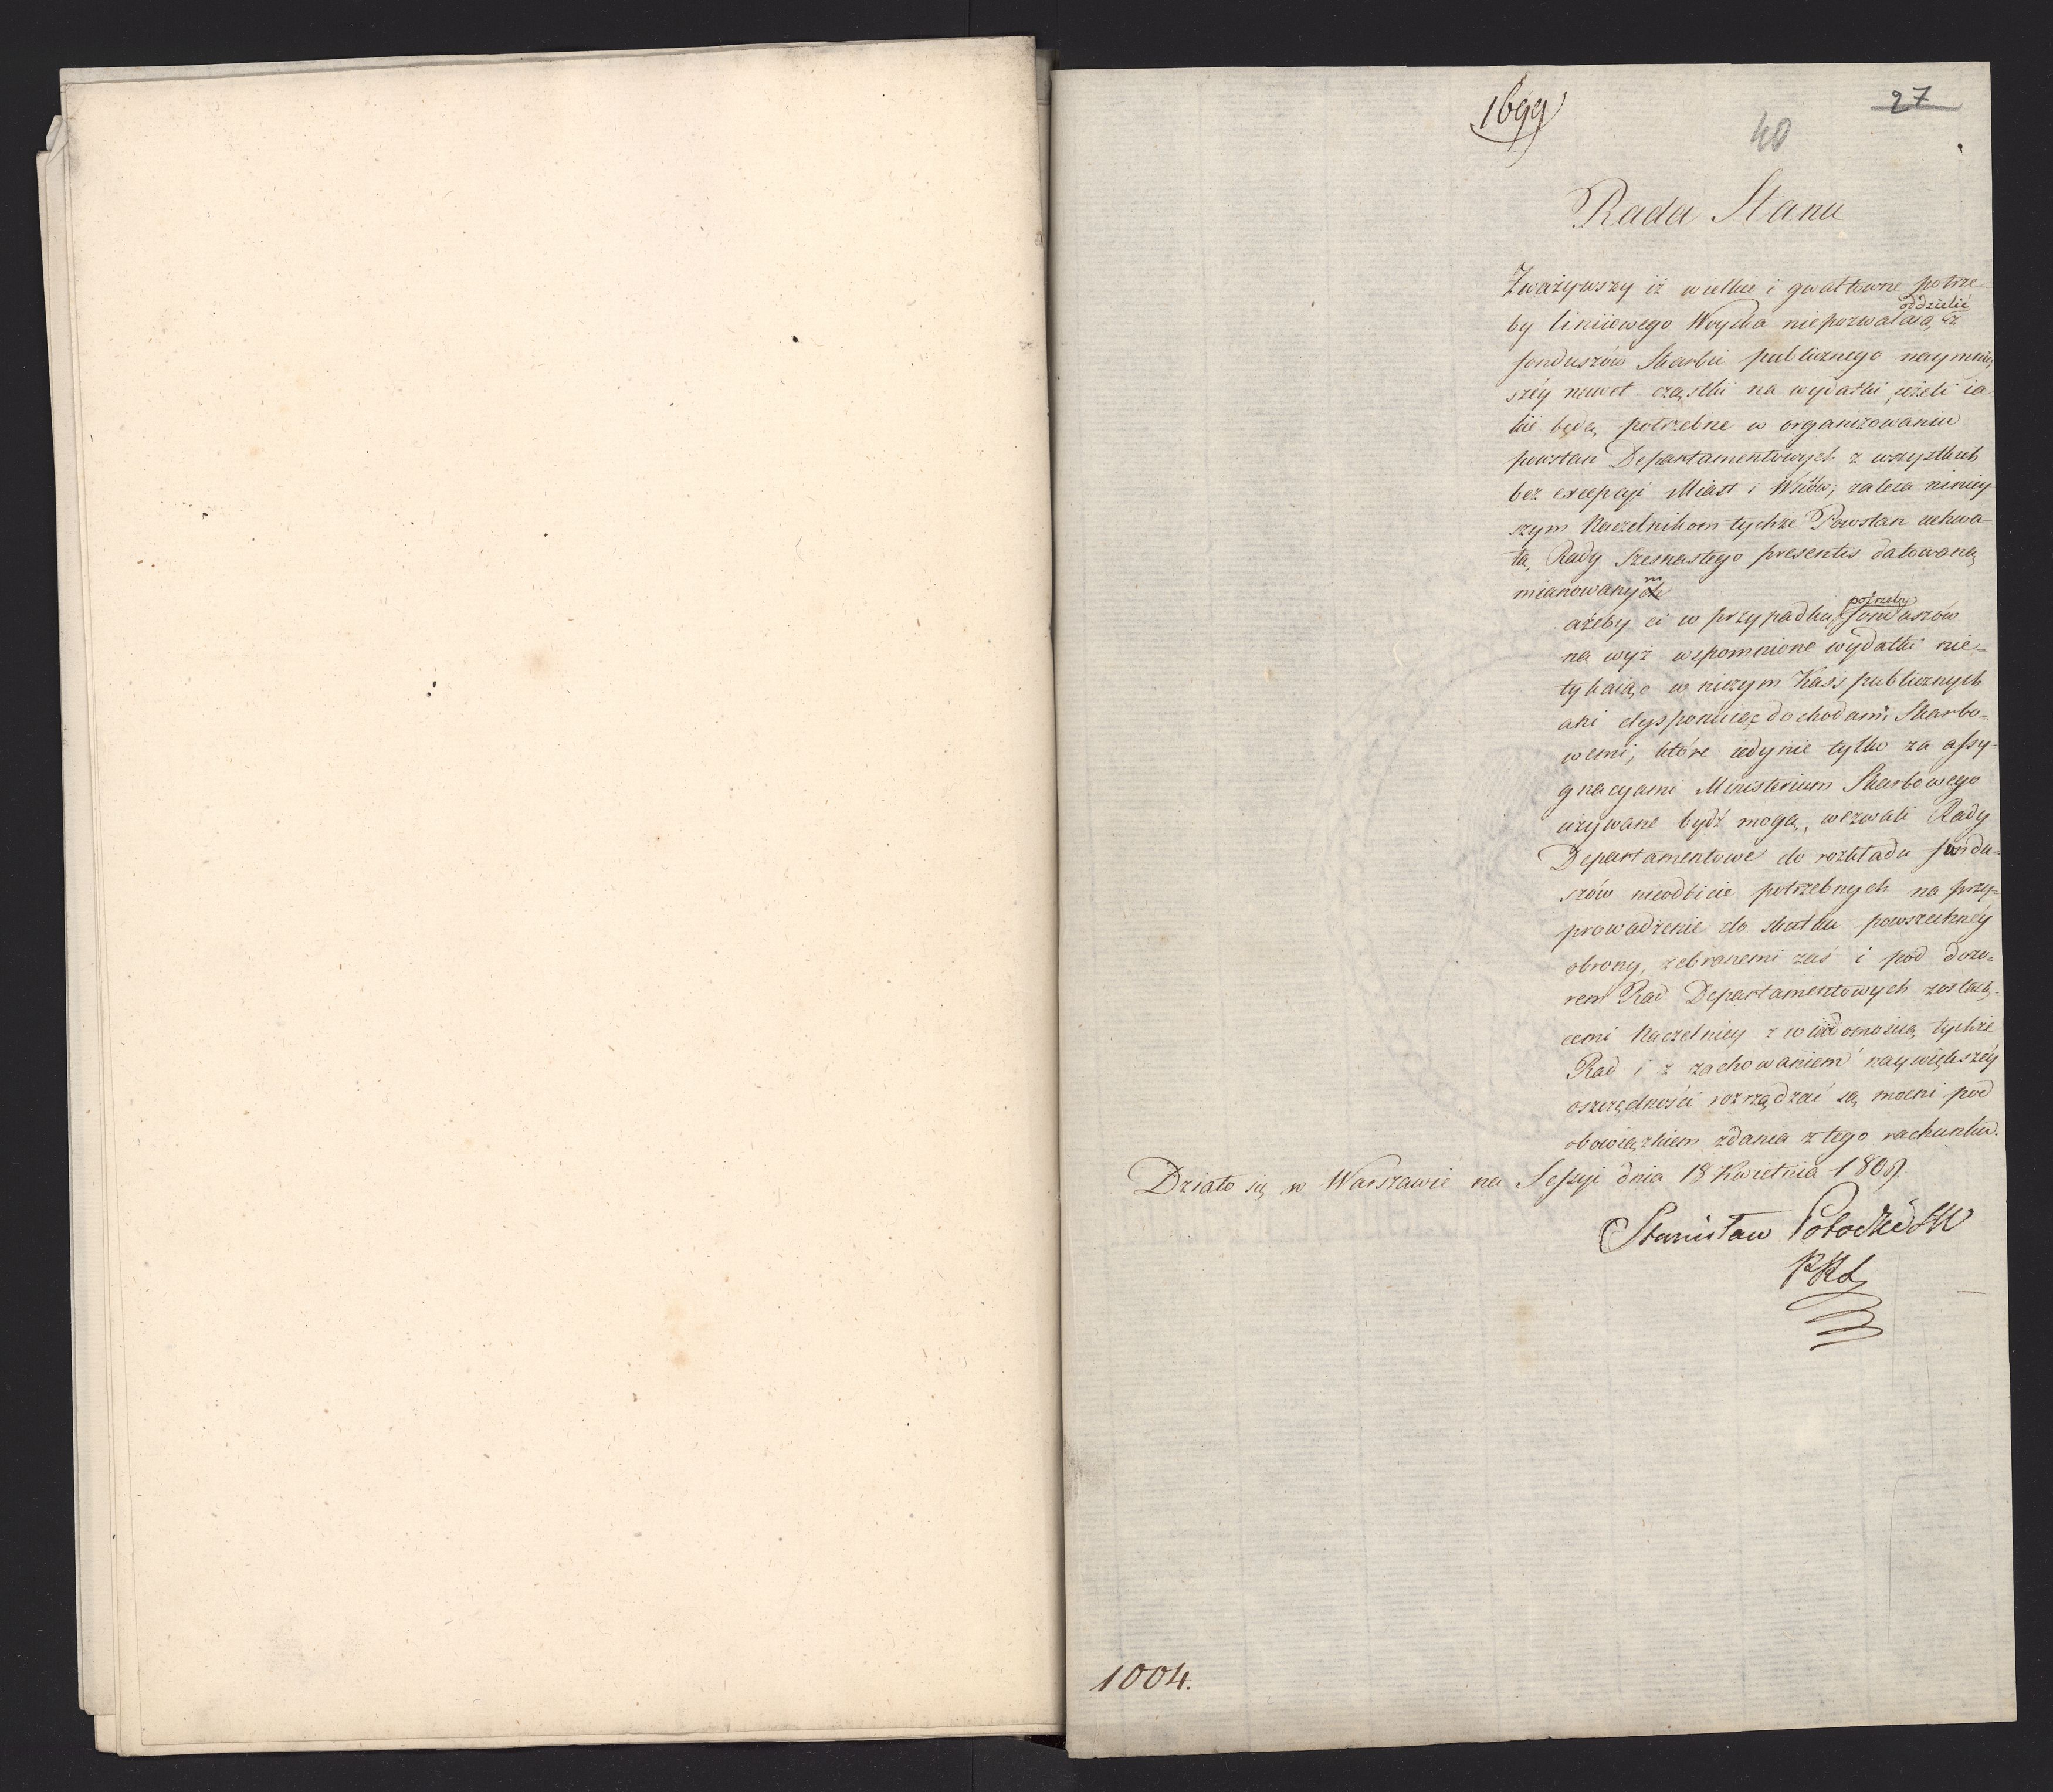 1699
27
40
Rada Stanu
Zważywszy iż wielkie i gwałtowne potrze-
oddzielić
by liniiowego Woyska niepozwalaią z
funduszów Skarbu publicznego naymniey
széy nawet cząstki na wydatki, ieżeli ia
kie będą potrzebne w organizowaniu
powstan Departamentowych z wszystkich
bez excepcyi Miast i Wsiów; zaleca niniey-
szym Naczelnikom tychże Powstan uchwa-
łą Rady szesnastego presentis datowaną
mianowanym
potrzeby
ażeby ci w przypadku funduszów
na wyż wspomnione wydatki nie-
tykaiąc w niczym Kass publicznych
ani dysponuiąc dochodami Skarbo-
wemi, które iedynie tylko za assy-
gnacyami Ministerium Skarbowego
używane bydź mogą, wezwali Rady
Departamentowe do rozkładu fundu-
szów nieodbicie potrzebnych na przy-
prowadzenie do skutku powszechnéy
obrony, zebranemi zaś i pod dozo-
rem Rad Departamentowych zostaią-
cemi Naczelnicy z wiadomością tychże
Rad i z zachowaniem naywiększéy
oszczędności rozrządzać są mocni pod
obowiązkiem zdania z tego rachunku.
Działo się w Warszawie na Sessyi dnia 18 Kwietnia 1809.
Stanisław Potocki
1004.